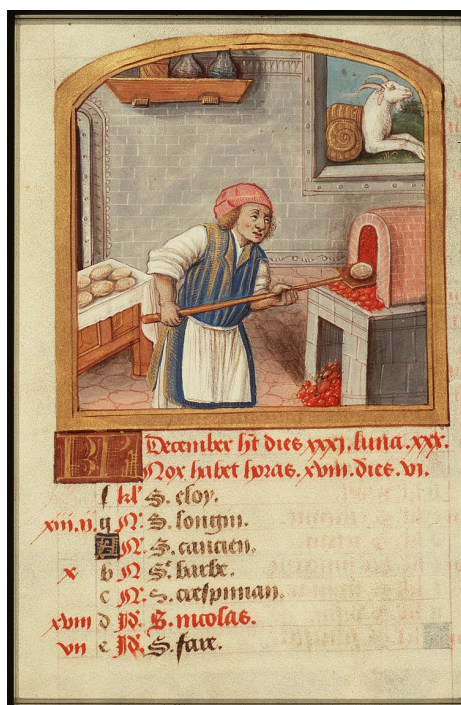 KL December ht dies xxxi. luna. xxx.
Nox habet horas. xviii. dies. vi.
f kl' S. eloy.
xiii. n. g N. S. longin.
A N. S. caucien.
x b N S. barbe.
c N. S. crespinian.
xviii d Id. S. nicolas.
vii e Id. S. fare.